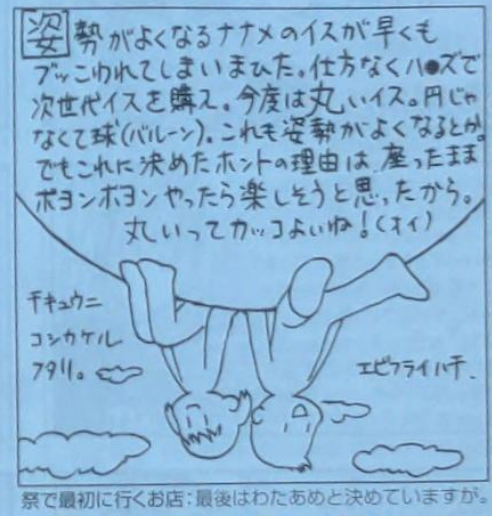 姿勢がよくなるナナメのイスが早くも
ブッこわれてしまいまひた。仕方なくハ●ズで
次世代イスを購入。今度は丸いイス。円じゃ
なくて球(バルーン)。これも姿勢がよくなるとか。
でもこれに決めたホントの理由は、座ったまま
ボヨンボヨンやったら楽しそうと思ったから。
丸いってカッコよいね！(オイ)
チキュウニ
コシカケル
フタリ。
エビフライハチ.
祭で最初に行くお店：最後はわたあめと決めていますが。